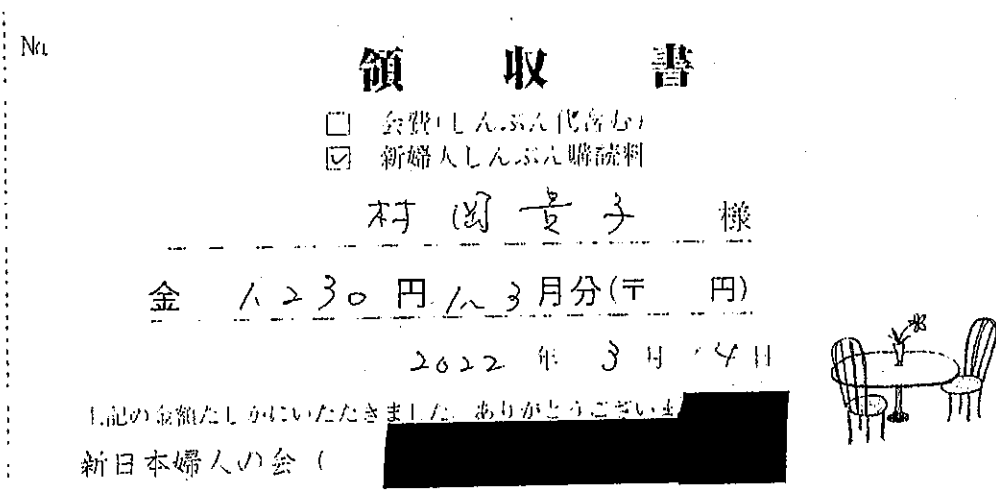 No.
領収書
□ 会費(しんぶん代含む)
☑ 新婦人しんぶん購読料
村岡貴子 様
金 1,230円 1〜3月分(〒 円)
2022年 3月 4日
上記の金額たしかにいただきました。ありがとうございま
新日本婦人の会 (